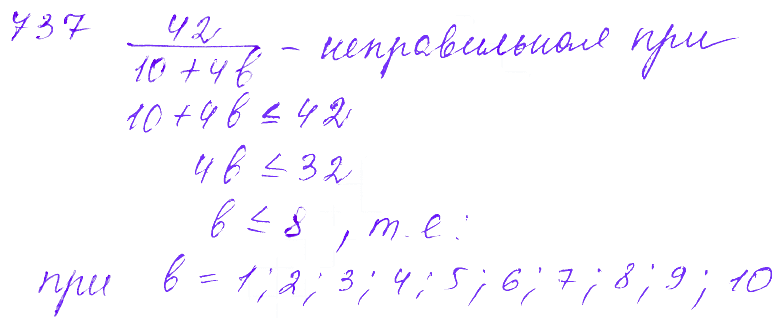 737 42/(10+4в) - неправильное при
10+4в ≤ 42
4в ≤ 32
в ≤ 8, т.е:
при в = 1; 2; 3; 4; 5; 6; 7; 8; 9; 10